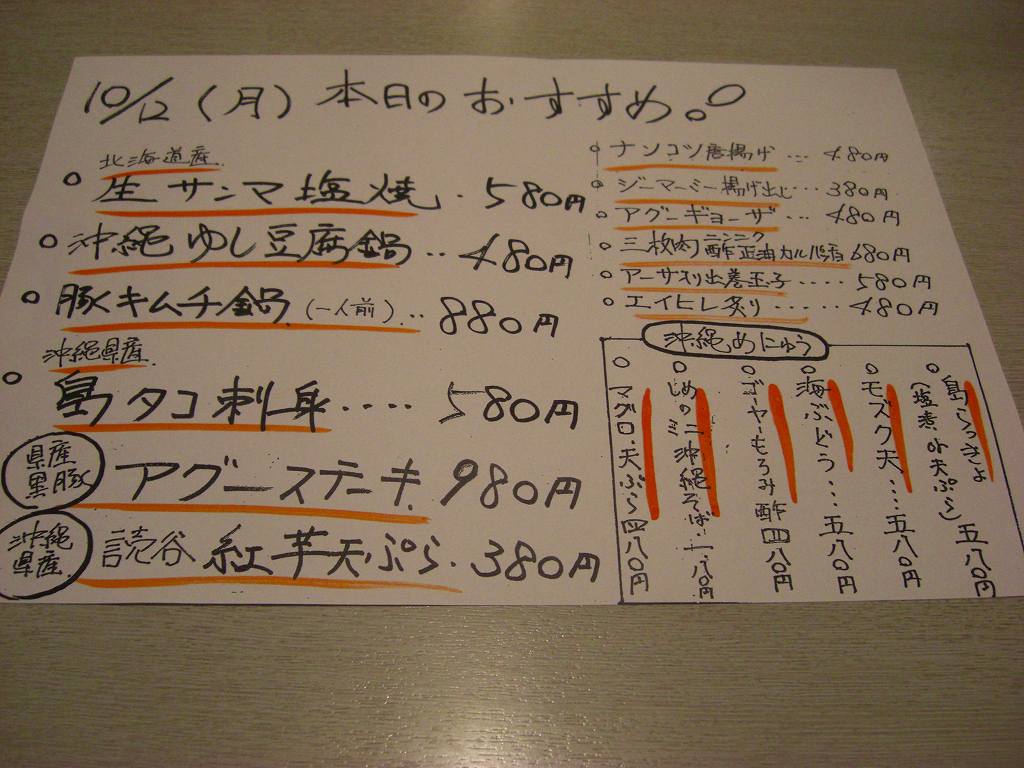 10/12(月) 本日のおすすめ。
北海道産
○生サンマ塩焼・580円
○沖縄ゆし豆腐鍋‥480円
○豚キムチ鍋(一人前)…880円
沖縄県産
○島タコ刺身‥‥580円
県産黒豚 アグーステーキ 980円
沖縄県産 読谷 紅芋天ぷら・380円
○ナンコツ唐揚げ…480円
○ジーマーミー揚げ出し…380円
○アグーギョーザ…480円
○三枚肉ニンニク酢正油カルパッチョ 680円
○アーサ入り出巻玉子‥‥580円
○エイヒレ炙り‥‥480円
沖縄めにゅう
○島らっきょ
(塩漬 or 天ぷら)五八〇円
○モズク天…五八〇円
○海ぶどう…五八〇円
○ゴーヤーもろみ酢 四八〇円
○じめのミニ沖縄そば
○マグロ天ぷら 四八〇円